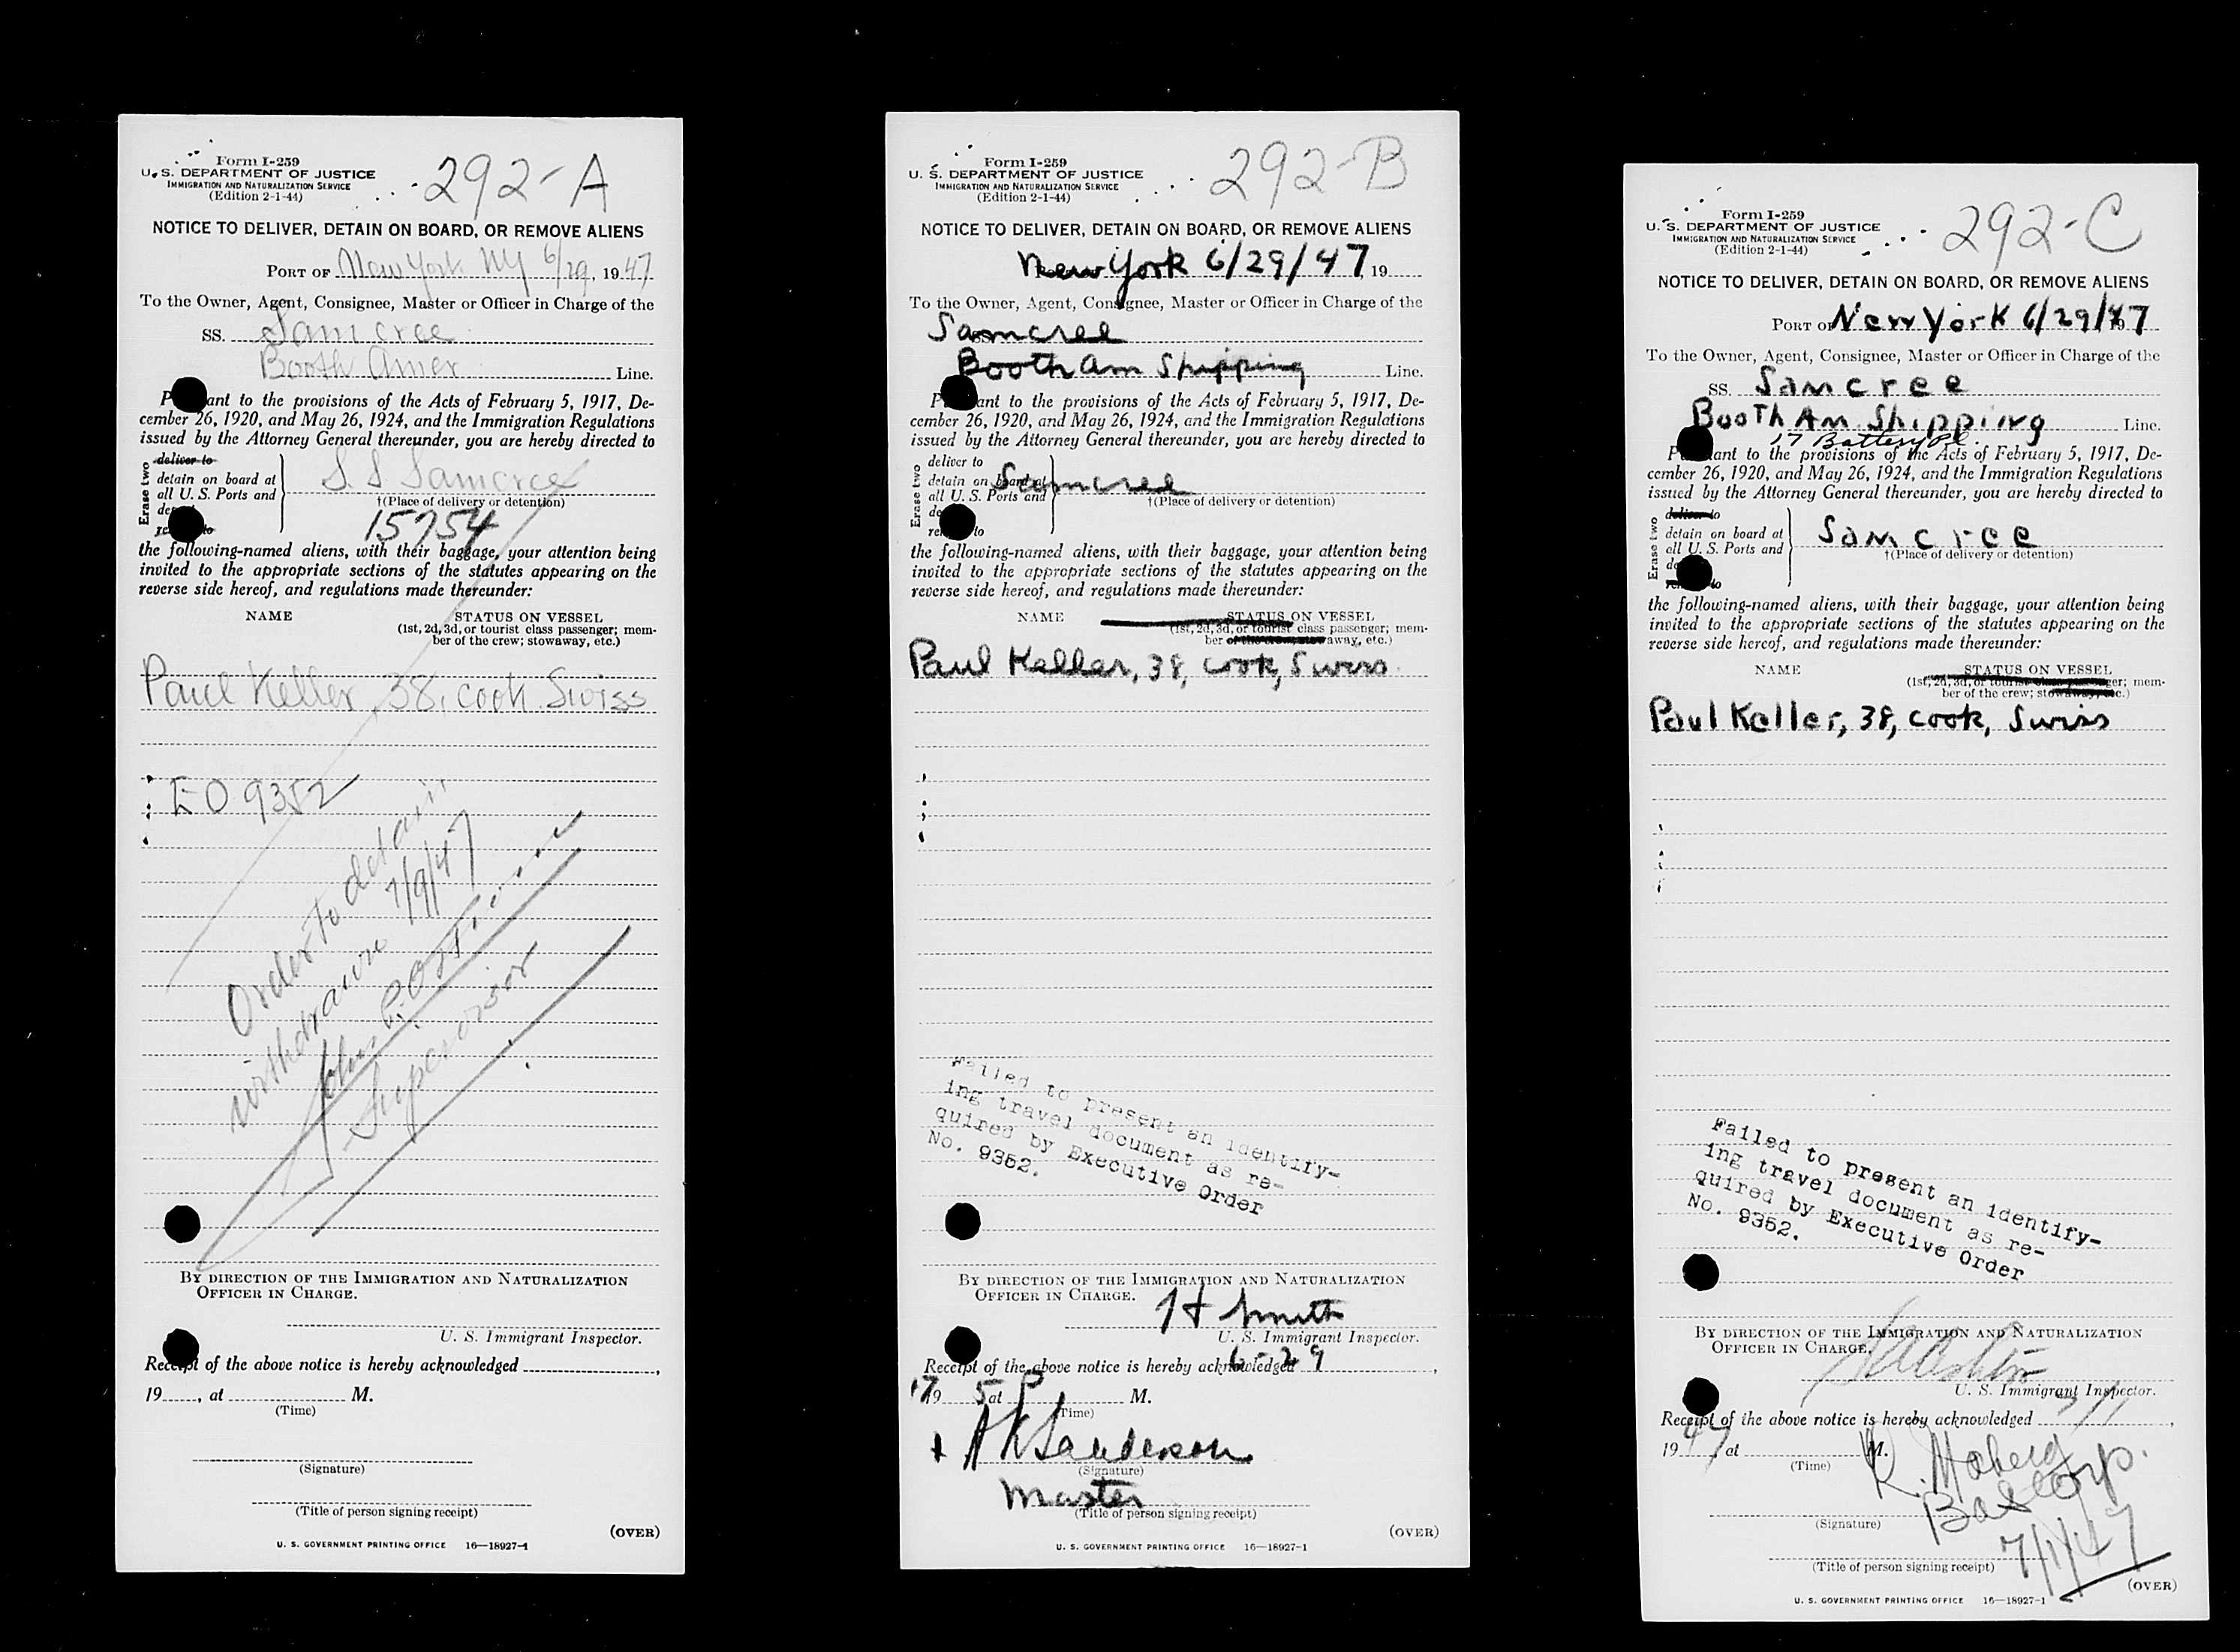 Form I-259
U. S. DEPARTMENT OF JUSTICE
IMMIGRATION AND NATURALIZATION SERVICE
(Edition 2-1-44)
292-A
NOTICE TO DELIVER, DETAIN ON BOARD, OR REMOVE ALIENS
PORT OF New York NY 6/29, 1947
To the Owner, Agent, Consignee, Master or Officer in Charge of the
SS. Samcree
Booth Amer Line.
P ant to the provisions of the Acts of February 5, 1917, De-
cember 26, 1920, and May 26, 1924, and the Immigration Regulations
issued by the Attorney General thereunder, you are hereby directed to
Erase two
deliver to
detain on board at
all U. S. Ports and
de
re to
S. S Samcree
†(Place of delivery or detention)
15754
the following-named aliens, with their baggage, your attention being
invited to the appropriate sections of the statutes appearing on the
reverse side hereof, and regulations made thereunder:
NAME STATUS ON VESSEL
(1st, 2d, 3d, or tourist class passenger; mem-
ber of the crew; stowaway, etc.)
Paul Keller, 38, cook Swiss
EO 9352
Order to detain
withdrawn 7/9/47
John
Supervisor
BY DIRECTION OF THE IMMIGRATION AND NATURALIZATION
OFFICER IN CHARGE.
U. S. Immigrant Inspector.
Receipt of the above notice is hereby acknowledged ,
19 , at M.
(Time)
(Signature)
(Title of person signing receipt)
(OVER)
U. S. GOVERNMENT PRINTING OFFICE 16—18927-1
Form I-259
U. S. DEPARTMENT OF JUSTICE
IMMIGRATION AND NATURALIZATION SERVICE
(Edition 2-1-44)
292-B
NOTICE TO DELIVER, DETAIN ON BOARD, OR REMOVE ALIENS
New York 6/29/47 19
To the Owner, Agent, Consignee, Master or Officer in Charge of the
Samcree
Booth Am Shipping Line.
P ant to the provisions of the Acts of February 5, 1917, De-
cember 26, 1920, and May 26, 1924, and the Immigration Regulations
issued by the Attorney General thereunder, you are hereby directed to
Erase two
deliver to
detain on board at
all U. S. Ports and
de
re to
Samcree
†(Place of delivery or detention)
the following-named aliens, with their baggage, your attention being
invited to the appropriate sections of the statutes appearing on the
reverse side hereof, and regulations made thereunder:
NAME STATUS ON VESSEL
(1st, 2d, 3d, or tourist class passenger; mem-
ber of the crew; stowaway, etc.)
Paul Keller, 38, cook, Swiss
Failed to present an identify-
ing travel document as re-
quired by Executive Order
No. 9352.
BY DIRECTION OF THE IMMIGRATION AND NATURALIZATION
OFFICER IN CHARGE.
H Smith
U. S. Immigrant Inspector.
Receipt of the above notice is hereby acknowledged 6-29 ,
19 5 at P M.
(Time)
A K Sanderson
(Signature)
Master
(Title of person signing receipt)
(OVER)
U. S. GOVERNMENT PRINTING OFFICE 16—18927-1
Form I-259
U. S. DEPARTMENT OF JUSTICE
IMMIGRATION AND NATURALIZATION SERVICE
(Edition 2-1-44)
292-C
NOTICE TO DELIVER, DETAIN ON BOARD, OR REMOVE ALIENS
PORT OF New York 6/29/47
To the Owner, Agent, Consignee, Master or Officer in Charge of the
SS. Samcree
Booth Am Shipping Line.
17 Battery Pl.
P ant to the provisions of the Acts of February 5, 1917, De-
cember 26, 1920, and May 26, 1924, and the Immigration Regulations
issued by the Attorney General thereunder, you are hereby directed to
Erase two
deliver to
detain on board at
all U. S. Ports and
de
re to
Samcree
†(Place of delivery or detention)
the following-named aliens, with their baggage, your attention being
invited to the appropriate sections of the statutes appearing on the
reverse side hereof, and regulations made thereunder:
NAME STATUS ON VESSEL
(1st, 2d, 3d, or tourist class passenger; mem-
ber of the crew; stowaway, etc.)
Paul Keller, 38, cook, Swiss
Failed to present an identify-
ing travel document as re-
quired by Executive Order
No. 9352.
BY DIRECTION OF THE IMMIGRATION AND NATURALIZATION
OFFICER IN CHARGE.
U. S. Immigrant Inspector.
Receipt of the above notice is hereby acknowledged ,
1947 at M.
(Time)
(Signature)
7/1/47
(Title of person signing receipt)
(OVER)
U. S. GOVERNMENT PRINTING OFFICE 16—18927-1